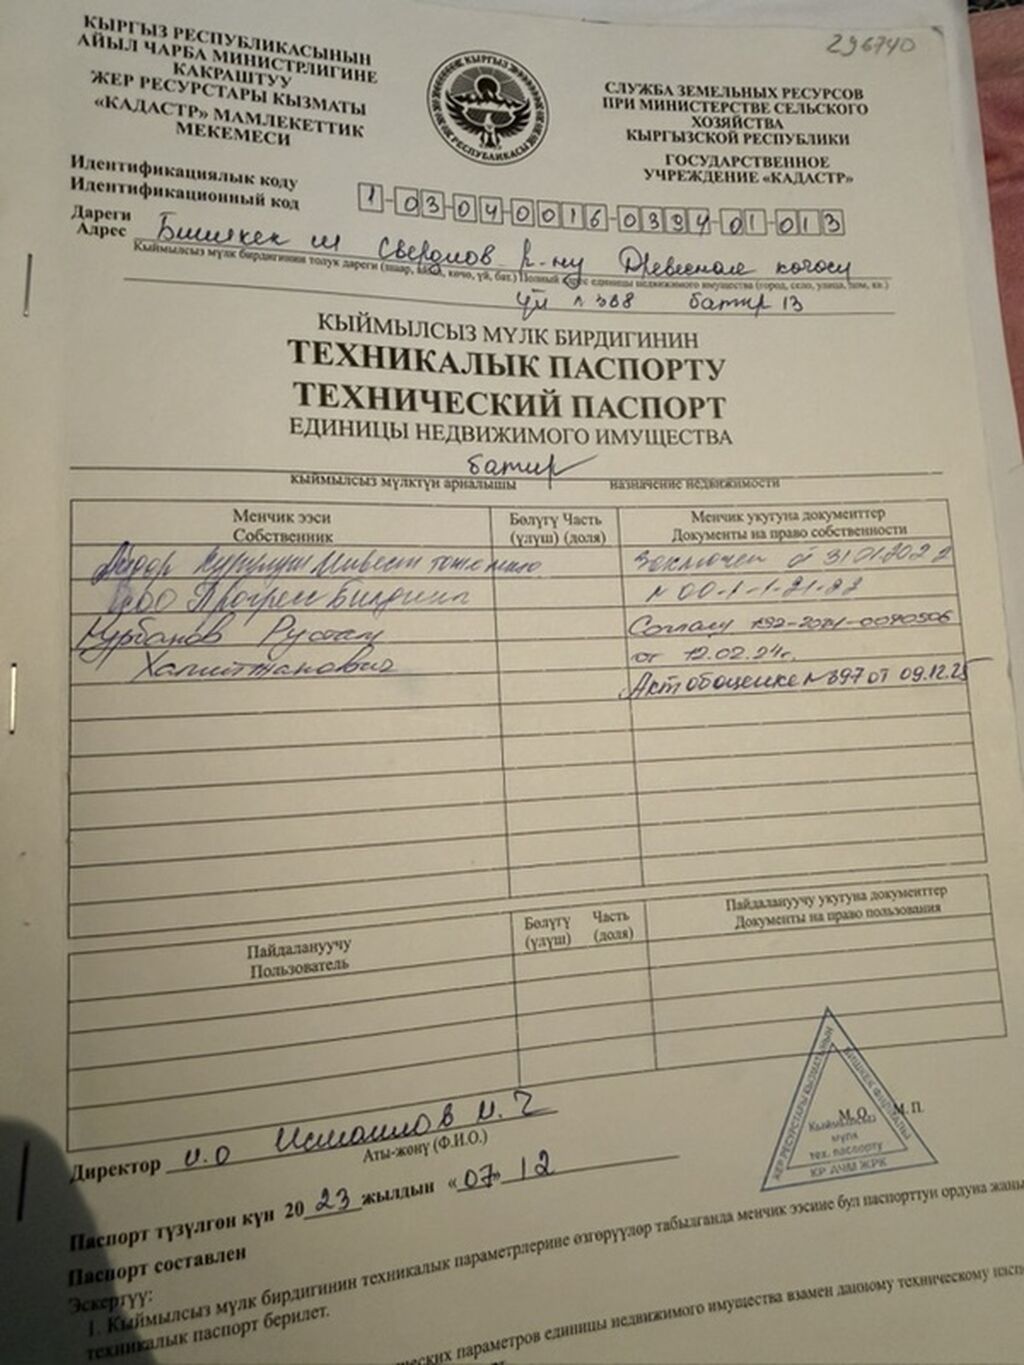 296740
КЫРГЫЗ РЕСПУБЛИКАСЫНЫН
АЙЫЛ ЧАРБА МИНИСТРЛИГИНЕ
КАКРАШТУУ
ЖЕР РЕСУРСТАРЫ КЫЗМАТЫ
«КАДАСТР» МАМЛЕКЕТТИК
МЕКЕМЕСИ
КЫРГЫЗ
РЕСПУБЛИКАСЫ
СЛУЖБА ЗЕМЕЛЬНЫХ РЕСУРСОВ
ПРИ МИНИСТЕРСТВЕ СЕЛЬСКОГО
ХОЗЯЙСТВА
КЫРГЫЗСКОЙ РЕСПУБЛИКИ
ГОСУДАРСТВЕННОЕ
УЧРЕЖДЕНИЕ «КАДАСТР»
Идентификациялык коду
Идентификационный код
1-03-04-0016-0394-01-013
Дареги
Адрес Бишкек ш Свердлов р-ну Древесная көчөсү
Кыймылсыз мүлк бирдигинин толук дареги (шаар, айыл, көчө, үй, бат.) Полный адрес единицы недвижимого имущества (город, село, улица, дом, кв.)
үй №368 батир 13
КЫЙМЫЛСЫЗ МҮЛК БИРДИГИНИН
ТЕХНИКАЛЫК ПАСПОРТУ
ТЕХНИЧЕСКИЙ ПАСПОРТ
ЕДИНИЦЫ НЕДВИЖИМОГО ИМУЩЕСТВА
батир
кыймылсыз мүлктүн арналышы назначение недвижимости
Менчик ээси Бөлүгү Часть Менчик укугуна документтер
Собственник (үлүш) (доля) Документы на право собственности
Курулуш Инвест 31.01.2022
ОсОО Прогресс Билдинг № 00-1-1-21-22
Курбанов Рустам Соглаш 192-2024-0090506
Халитжанович от 12.02.24г.
Акт о боценке №397 от 09.12.25
Пайдалануучу Бөлүгү Часть Пайдалануучу укугуна документтер
Пользователь (үлүш) (доля) Документы на право пользования
Директор и.о Исмаилов И. Т
Аты-жөнү (Ф.И.О.)
М.О. М.П.
ЖЕР РЕСУРСТАРЫ КЫЗМАТЫНЫН
БИШКЕК ФИЛИАЛЫ
Кыймылсыз
мүлк
тех. паспорту
КР АЧМ ЖРК
Паспорт түзүлгөн күн 2023 жылдын «07» 12
Паспорт составлен
Эскертүү:
1. Кыймылсыз мүлк бирдигинин техникалык параметрлерине өзгөрүүлөр табылганда менчик ээсине бул паспорттун ордуна жаңы
техникалык паспорт берилет.
параметров единицы недвижимого имущества взамен данному техническому